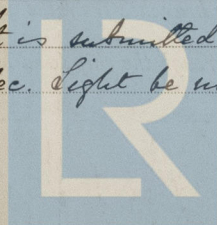 is submitted
Light be
LR